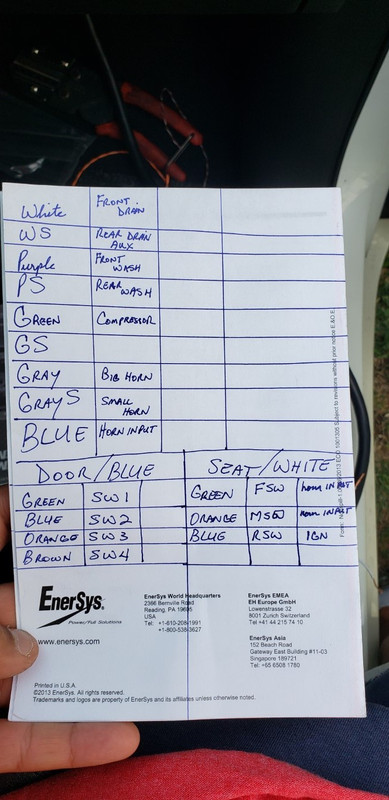 White FRONT DRAIN
WS REAR DRAIN AUX
Purple FRONT WASH
PS REAR WASH
GREEN COMPRESSOR
GS
GRAY BIG HORN
GRAYS SMALL HORN
BLUE HORN INPUT
DOOR/BLUE
GREEN SW1
BLUE SW2
ORANGE SW3
BROWN SW4
SEAT/WHITE
GREEN FSW horn INPUT
ORANGE MSW horn INPUT
BLUE RSW IGN
EnerSys.
Power/Full Solutions
www.enersys.com
EnerSys World Headquarters
2366 Bernville Road
Reading, PA 19605
USA
Tel: +1-610-208-1991
+1-800-538-3627
EnerSys EMEA
EH Europe GmbH
Lowenstrasse 32
8001 Zurich Switzerland
Tel +41 44 215 74 10
EnerSys Asia
152 Beach Road
Gateway East Building #11-03
Singapore 189721
Tel: +65 6508 1780
Printed in U.S.A.
©2013 EnerSys. All rights reserved.
Trademarks and logos are property of EnerSys and its affiliates unless otherwise noted.
Subject to revisions without prior notice E.&O.E.